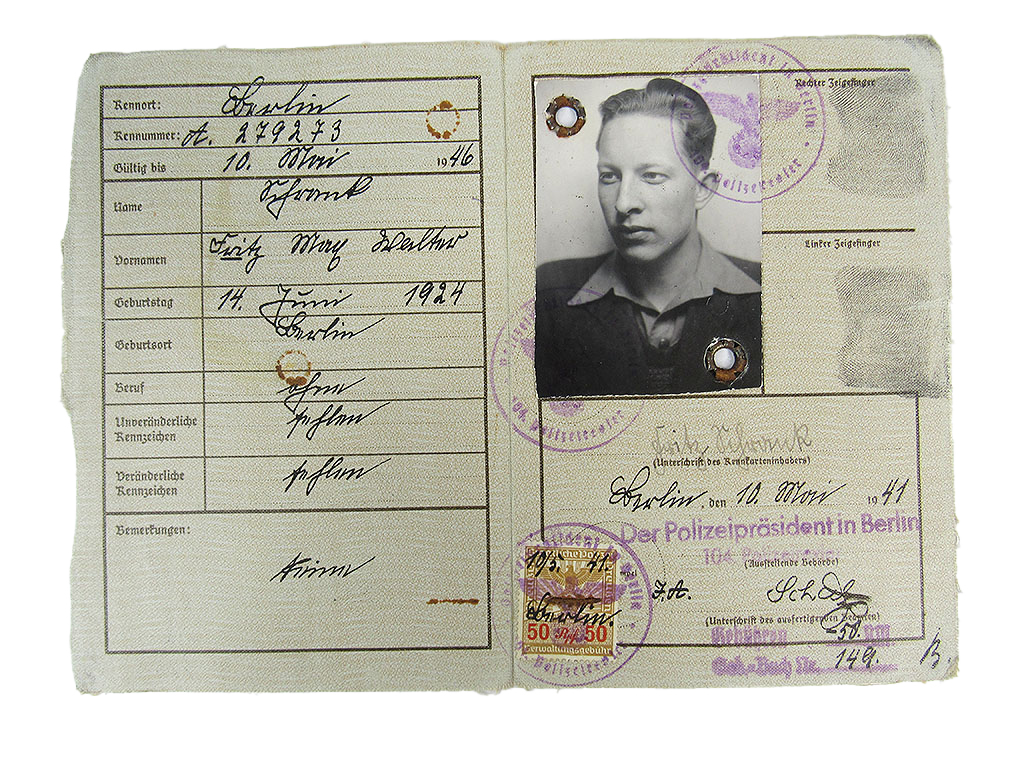 Kennort: Berlin
Kennummer: A. 279273
Gültig bis 10. Mai 1946
Name Schrank
Vornamen Fritz Max Walter
Geburtstag 14. Juni 1924
Geburtsort Berlin
Beruf ohne
Unveränderliche Kennzeichen fehlen
Veränderliche Kennzeichen fehlen
Bemerkungen:
keine
Rechter Zeigefinger
Linker Zeigefinger
Fritz Schrank
(Unterschrift des Kennkarteninhabers)
Berlin, den 10. Mai 1941
Der Polizeipräsident in Berlin
104. Polizeirevier
(Ausstellende Behörde)
J.A.
(Unterschrift des ausfertigenden Beamten)
Gebühren -50. RM
Geb.-Buch Nr. 149.
10/5. 41.
Berlin.
50 Rpf 50
Verwaltungsgebühr
104. Polizeirevier